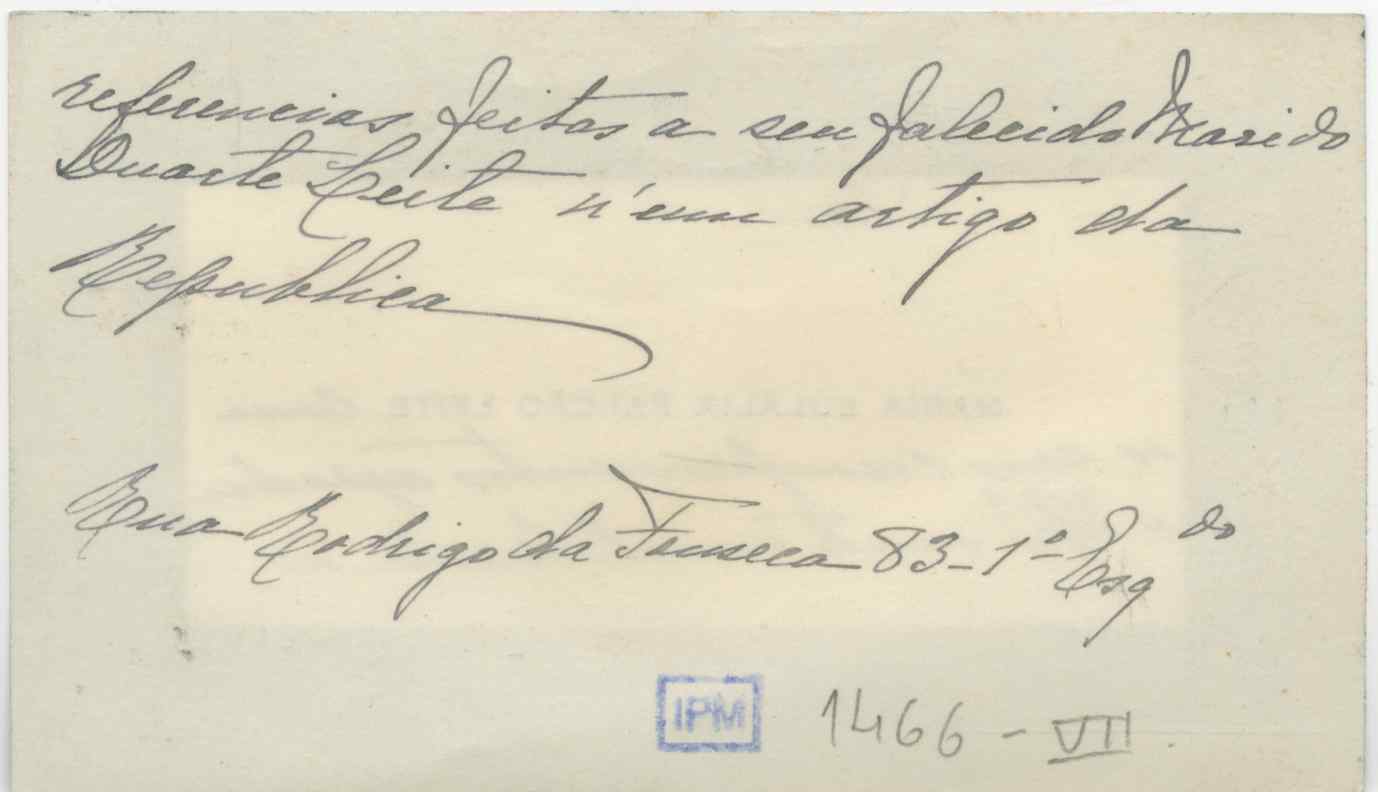 referencias feitas a seu falecido Marido
Duarte Leite n'um artigo da
Republica
Rua Rodrigo da Fonseca 83-1º Esq.do
IPM 1466-VII